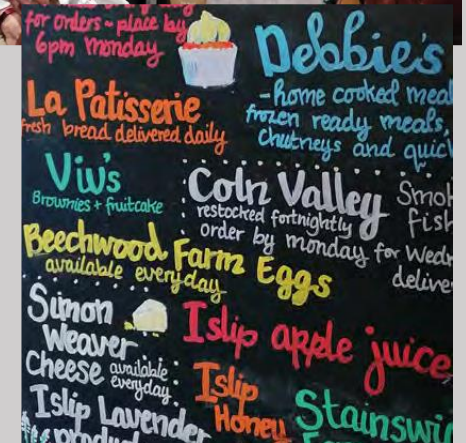 for orders ~ place by
6pm monday
Debbie's
- home cooked meal
frozen ready meals,
chutneys and quic
La Patisserie
fresh bread delivered daily
Viv's
Brownies + fruitcake
Coln Valley Smok
restocked fortnightly fish
order by monday for Wedn
delive
Beechwood Farm Eggs
available everyday
Simon
Weaver
Cheese available
everyday
Islip apple juice
Islip
Honey
Stainswi
Islip Lavender